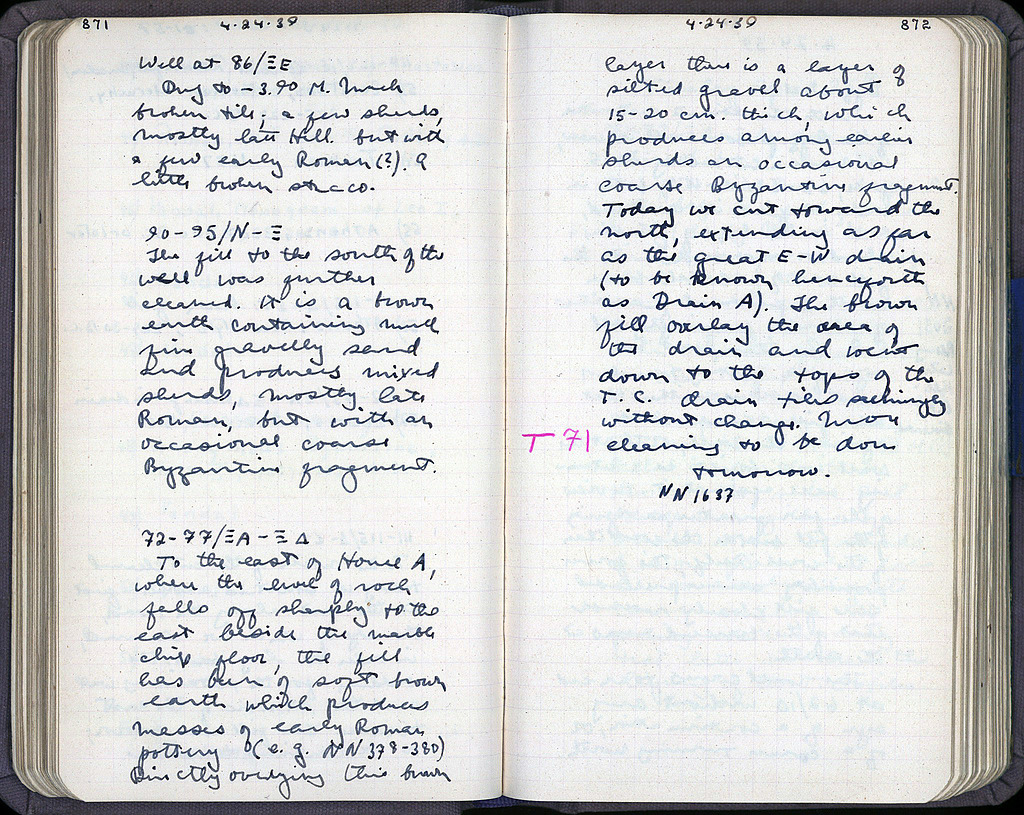 871
4-24-39
Well at 86/ΞE
Dug to -3.90 M. Much
broken tile; a few sherds,
mostly late Hell. but with
a few early Roman (?). A
little broken stucco.
90-95/N-Ξ
The fill to the south of the
well was further
cleaned. It is a brown
earth containing much
fine gravelly sand
and produces mixed
sherds, mostly late
Roman, but with an
occasional coarse
Byzantine fragment.
72-77/ΞA-ΞΔ
To the east of House A,
where the level of rock
falls off sharply to the
east beside the marble
chip floor, the fill
has been of soft brown
earth which produces
masses of early Roman
pottery (e.g. NN 378-380)
Directly overlying this brown
4-24-39
872
layer there is a layer of
silted gravel about
15-20 cm. thick, which
produces among earlier
sherds an occasional
coarse Byzantine fragment.
Today we cut toward the
north, extending as far
as the great E-W drain
(to be known henceforth
as Drain A). The brown
fill overlay the area of
the drain and went
down to the tops of the
T.C. drain tiles seemingly
without change. More
T 71 cleaning to be done
tomorrow.
NN 1637